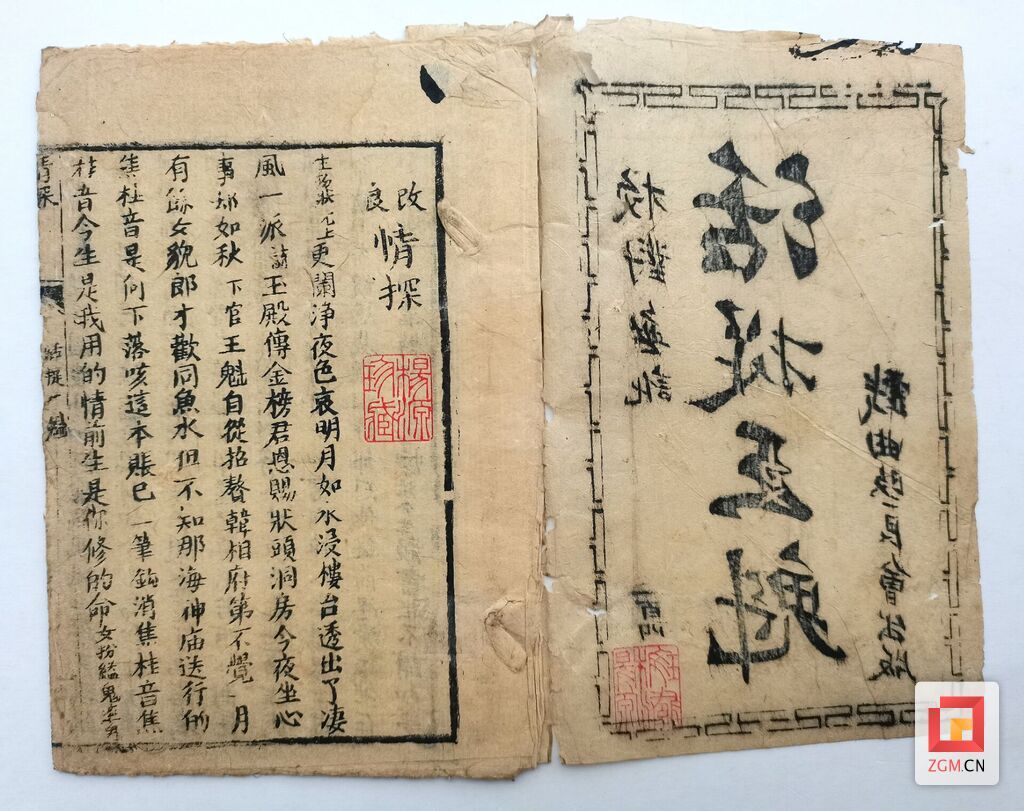 戲曲改良會出版
活捉王魁
校對無訛
改良
情探
上更闌淨夜色哀明月如水浸樓台透出了凄
風一派詩玉殿傳金榜君恩賜狀頭洞房今夜坐心
事却如秋下官王魁自從招贅韓相府第不覺一月
有餘女貌郎才歡同魚水但不知那海神庙送行的
焦桂音是何下落咳這本賬已一筆鈎消焦桂音焦
桂音今生是我用的情前生是你修的命女扮縊鬼
情探
活捉王魁
ZGM.CN